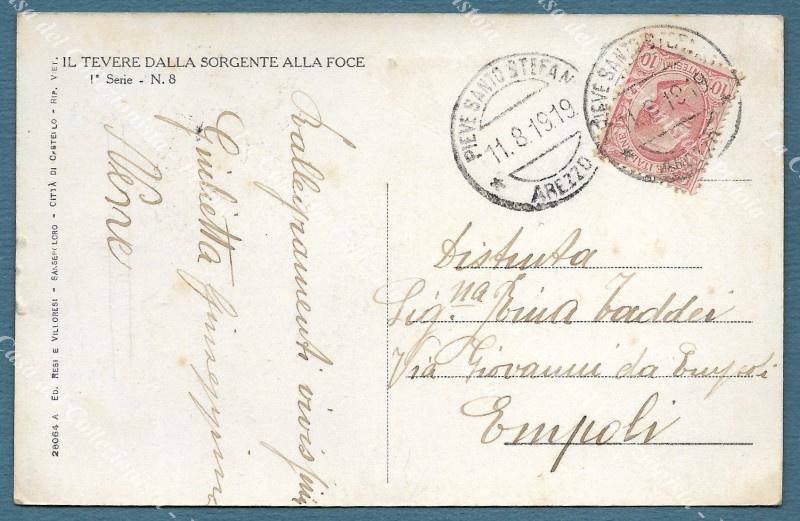 IL TEVERE DALLA SORGENTE ALLA FOCE
1ª Serie - N. 8
28064 A Ed. Resi e Villoresi - Sansepolcro - Città di Castello - Rip. Vet.
PIEVE SANTO STEFAN
11.8.1919
* AREZZO
PIEVE SANTO STEFAN
CENTESIMI
10 10
Rallegramenti vivissimi
Giulietta Giuseppina
Nene
Distinta
Sig.na Rina Taddei
Via Giovanni da Empoli
Empoli